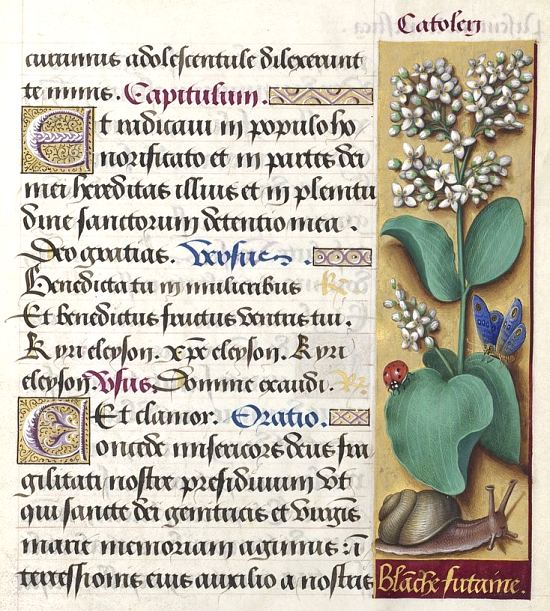 Catoleu
curramus adolescentule dilexerunt
te nimis. Capitulum.
Et radicaui in populo ho
norificato et in partes dei
mei hereditas illius et in plenitu
dine sanctorum detentio mea.
Deo gratias. Versus.
Benedicta tu in mulieribus R.
Et benedictus fructus ventris tui.
Kyri eleyson. Xpe eleyson. Kyri
eleyson. Vsus. Domine exaudi. R.
Et clamor. Oratio.
Concede misericors deus fra
gilitati nostre presidium Vt
qui sancte dei genitricis et virginis
marie memoriam agimus: i
tercessionis eius auxilio a nostris
Blāche futaine.